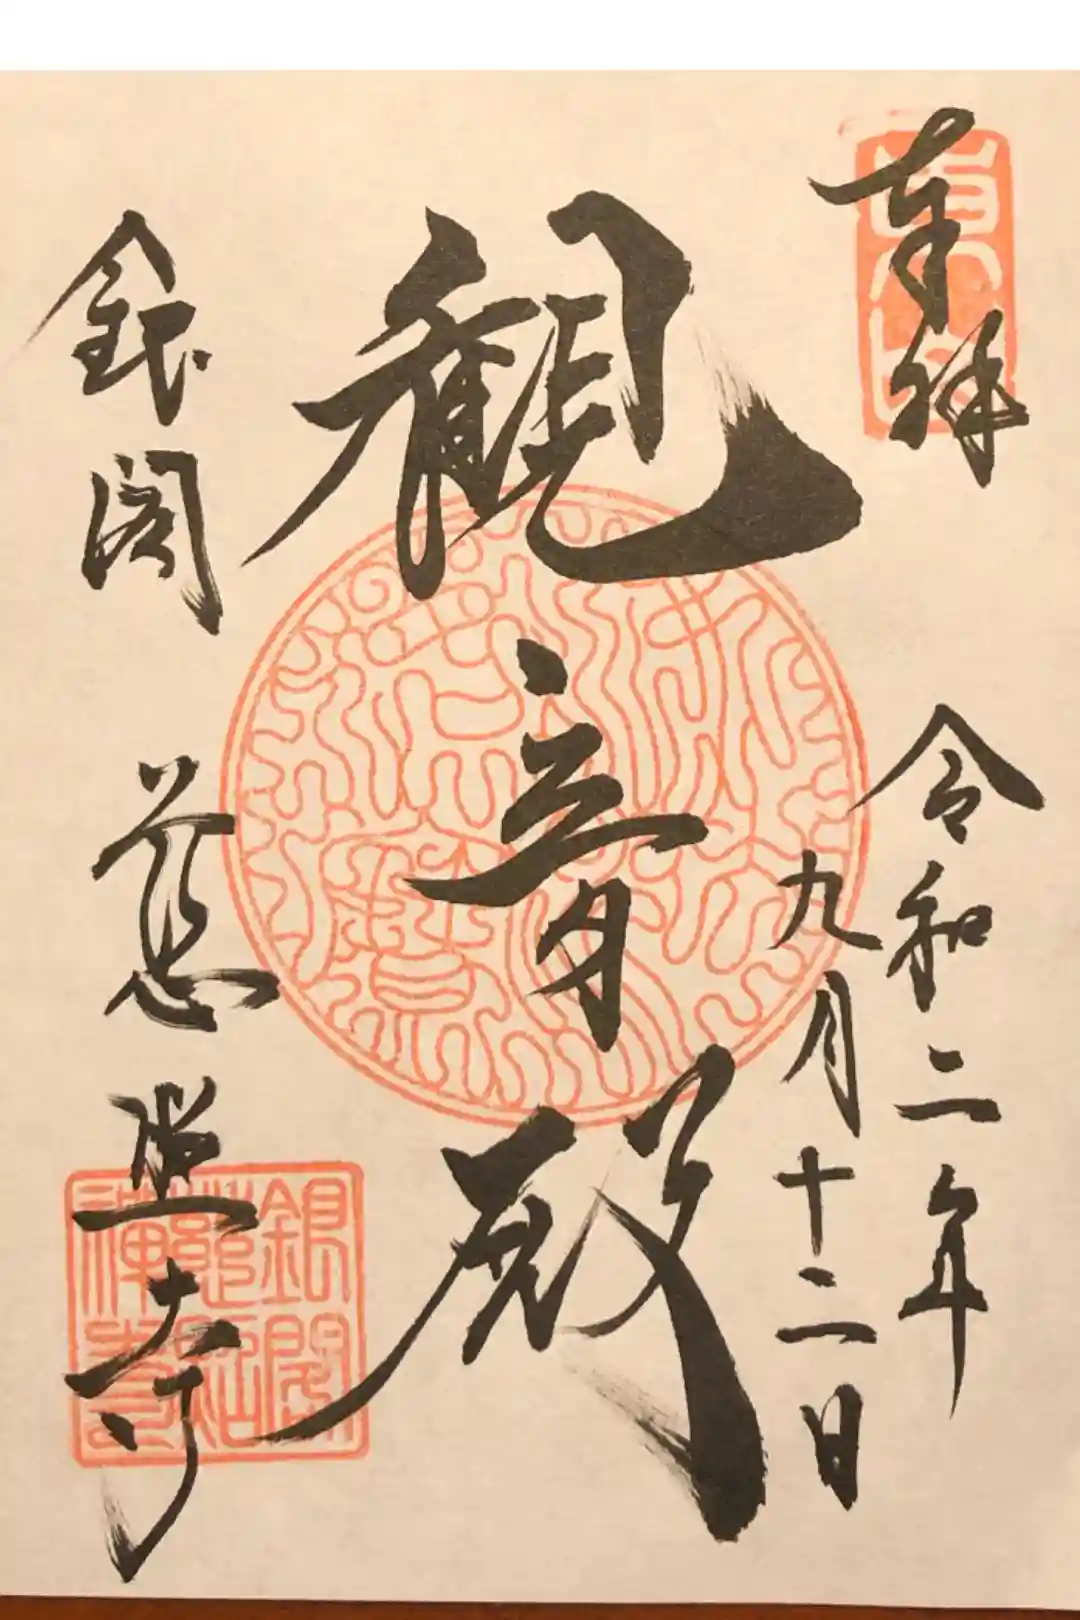 奉拝
令和二年
九月十二日
観音殿
銀閣
慈照寺
銀閣
慈照
禅寺
東山